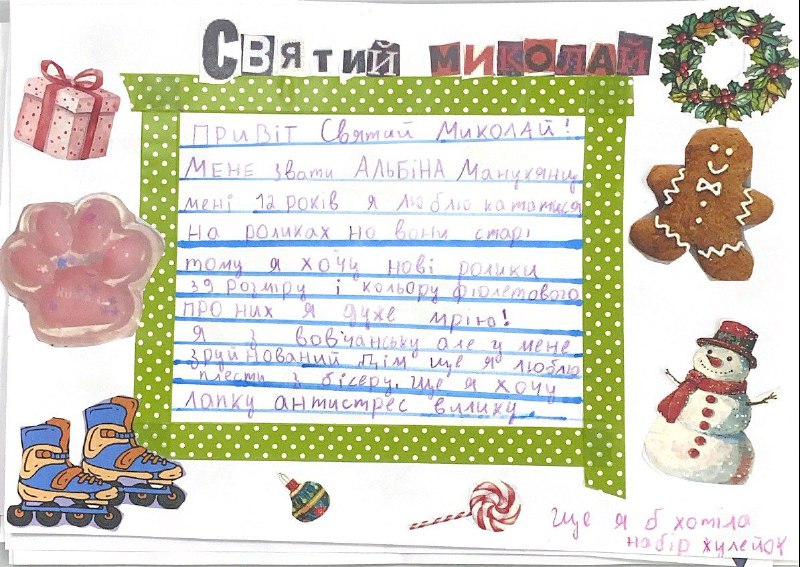 СВЯТИЙ МИКОЛАЙ
ПРИВІТ Святий МИКОЛАЙ!
МЕНЕ звати АЛЬБІНА Манукянц
мені 12 років я люблю кататися
на роликах но вони старі
тому я хочу нові ролики
39 розміру і кольору фіолетового
про них я дуже мрію!
Я з вовчанську але у мене
зруйнований дім ще я люблю
плести з бісеру. ще я хочу
лапку антистрес вилику.
ще я б хотіла
набір